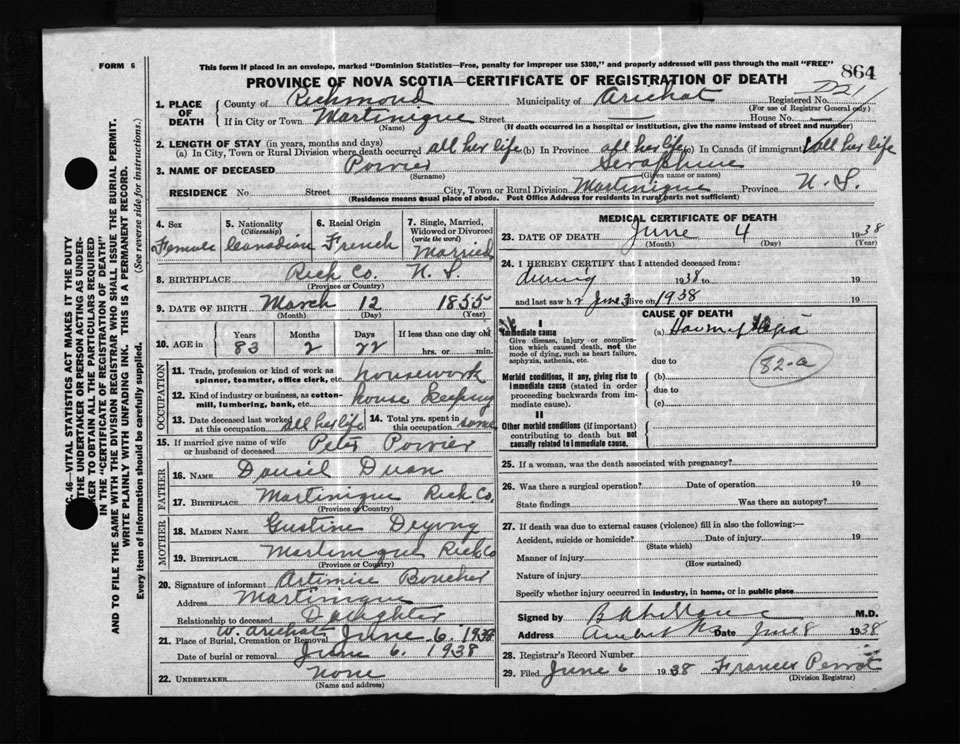 FORM 6
This form if placed in an envelope, marked "Dominion Statistics—Free, penalty for improper use $300," and properly addressed will pass through the mail "FREE"
864
PROVINCE OF NOVA SCOTIA—CERTIFICATE OF REGISTRATION OF DEATH
1. PLACE OF DEATH County of Richmond Municipality of Arichat Registered No.
(For use of Registrar General only)
If in City or Town Martinique Street House No.
(Name) (If death occurred in a hospital or institution, give the name instead of street and number)
2. LENGTH OF STAY (in years, months and days)
(a) In City, Town or Rural Division where death occurred all her life (b) In Province all her life (c) In Canada (if immigrant) all her life
3. NAME OF DECEASED Poirier Seraphine
(Surname) (Given name or names)
RESIDENCE No. Street City, Town or Rural Division Martinique Province N. S.
(Residence means usual place of abode. Post Office Address for residents in rural parts not sufficient)
4. Sex 5. Nationality (Citizenship) 6. Racial Origin 7. Single, Married, Widowed or Divorced (write the word)
Female Canadian French Married
8. BIRTHPLACE Rich Co. N. S.
(Province or Country)
9. DATE OF BIRTH March 12 1855
(Month) (Day) (Year)
10. AGE in Years Months Days If less than one day old
83 2 22 hrs. or min.
OCCUPATION
11. Trade, profession or kind of work as spinner, teamster, office clerk, etc. housework
12. Kind of industry or business, as cotton-mill, lumbering, bank, etc. house keeping
13. Date deceased last worked at this occupation all her life 14. Total yrs. spent in this occupation same
15. If married give name of wife or husband of deceased Peter Poirier
FATHER
16. NAME Daniel Duan
17. BIRTHPLACE Martinique Rich. Co.
(Province or Country)
MOTHER
18. MAIDEN NAME Gustine Deyong
19. BIRTHPLACE Martinique Rich Co
(Province or Country)
20. Signature of informant Artimise Boucher
Address Martinique
Relationship to deceased Daughter
21. Place of Burial, Cremation or Removal W. Arichat June 6. 1938
Date of burial or removal June 6. 1938
22. UNDERTAKER None
(Name and address)
MEDICAL CERTIFICATE OF DEATH
23. DATE OF DEATH June 4 1938
(Month) (Day) (Year)
24. I HEREBY CERTIFY that I attended deceased from:
during 1938 to 19
and last saw h r June 3 alive on 1938
CAUSE OF DEATH
I
Immediate cause (a)
Give disease, injury or complication which caused death, not the mode of dying, such as heart failure, asphyxia, asthenia, etc.
82-a
due to
Morbid conditions, if any, giving rise to immediate cause (stated in order proceeding backwards from immediate cause). (b)
due to
(c)
II
Other morbid conditions (if important) contributing to death but not causally related to immediate cause.
25. If a woman, was the death associated with pregnancy?
26. Was there a surgical operation? Date of operation 19
State findings Was there an autopsy?
27. If death was due to external causes (violence) fill in also the following:—
Accident, suicide or homicide? Date of injury 19
(State which)
Manner of injury
(How sustained)
Nature of injury
Specify whether injury occurred in industry, in home, or in public place
Signed by M.D.
Address Date June 8 1938
28. Registrar's Record Number
29. Filed June 6 1938 Frances
(Division Registrar)
SEC. 46—VITAL STATISTICS ACT MAKES IT THE DUTY
THE UNDERTAKER OR PERSON ACTING AS UNDER-
TAKER TO OBTAIN ALL THE PARTICULARS REQUIRED
IN THE "CERTIFICATE OF REGISTRATION OF DEATH"
AND TO FILE THE SAME WITH THE DIVISION REGISTRAR WHO SHALL ISSUE THE BURIAL PERMIT.
WRITE PLAINLY WITH UNFADING INK. THIS IS A PERMANENT RECORD.
Every item of information should be carefully supplied. (See reverse side for instructions.)